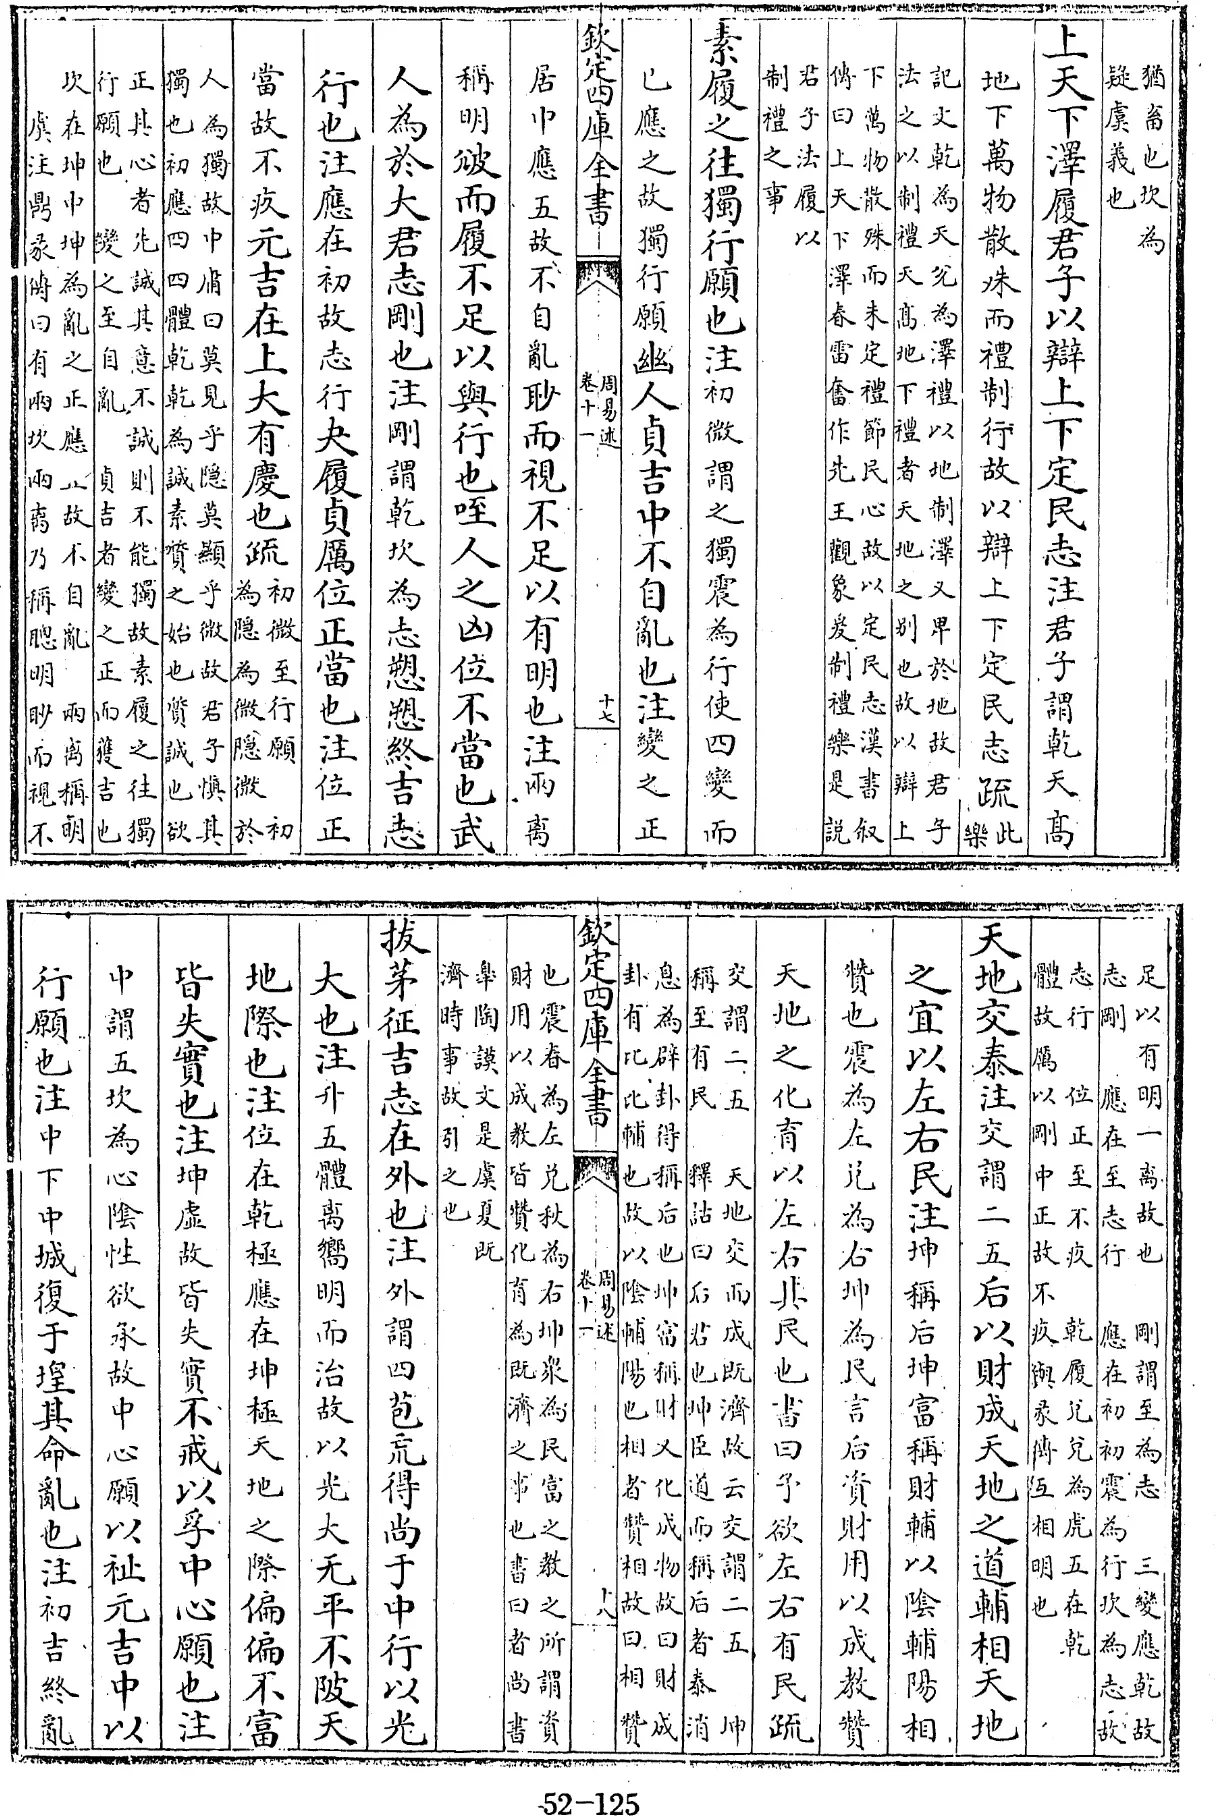 猶畜也坎為
疑虞義也
上天下澤履君子以辯上下定民志注君子謂乾天髙
地下萬物散殊而禮制行故以辯上下定民志疏此
樂
記文乾為天兊為澤禮以地制澤又卑於地故君子
法之以制禮天髙地下禮者天地之别也故以辯上
下萬物散殊而未定禮節民心故以定民志漢書叙
傳曰上天下澤春雷奮作先王觀象爰制禮樂是説
君子法履以
制禮之事
素履之往獨行願也注初微謂之獨震為行使四變而
已應之故獨行願幽人貞吉中不自亂也注變之正
欽定四庫全書
周易述
卷十一
十七
居中應五故不自亂眇而視不足以有明也注兩离
稱明跛而履不足以與行也咥人之凶位不當也武
人為於大君志剛也注剛謂乾坎為志愬愬終吉志
行也注應在初故志行夬履貞厲位正當也注位正
當故不疚元吉在上大有慶也疏初微至行願　初
為隠為微隠微於
人為獨故中庸曰莫見乎隠莫顯乎微故君子慎其
獨也初應四四體乾乾為誠素質之始也質誠也欲
正其心者先誠其意不誠則不能獨故素履之往獨
行願也　變之至自亂　貞吉者變之正而獲吉也
坎在坤中坤為亂之正應五故不自亂　兩离稱明
虞注鼎彖傳曰有兩坎兩离乃稱聰明眇而視不
足以有明一离故也　剛謂至為志　三變應乾故
志剛　應在至志行　應在初初震為行坎為志故
志行　位正至不疚　乾履兊兊為虎五在乾
體故厲以剛中正故不疚與彖傳互相明也
天地交泰注交謂二五后以財成天地之道輔相天地
之宜以左右民注坤稱后坤富稱財輔以陰輔陽相
贊也震為左兊為右坤為民言后資財用以成教贊
天地之化育以左右其民也書曰予欲左右有民疏
交謂二五　天地交而成既濟故云交謂二五　坤
稱至有民　釋詁曰后君也坤臣道而稱后者泰消
息為辟卦得稱后也坤富稱財又化成物故曰財成
卦有比比輔也故以陰輔陽也相者贊相故曰相贊
欽定四庫全書
周易述
卷十一
十八
也震春為左兊秋為右坤衆為民富之教之所謂資
財用以成教皆贊化育為既濟之事也書曰者尚書
臯陶謨文是虞夏既
濟時事故引之也
拔茅征吉志在外也注外謂四苞巟得尚于中行以光
大也注升五體离嚮明而治故以光大无平不陂天
地際也注位在乾極應在坤極天地之際偏偏不富
皆失實也注坤虛故皆失實不戒以孚中心願也注
中謂五坎為心陰性欲承故中心願以祉元吉中以
行願也注中下中城復于堭其命亂也注初吉終亂
52-125